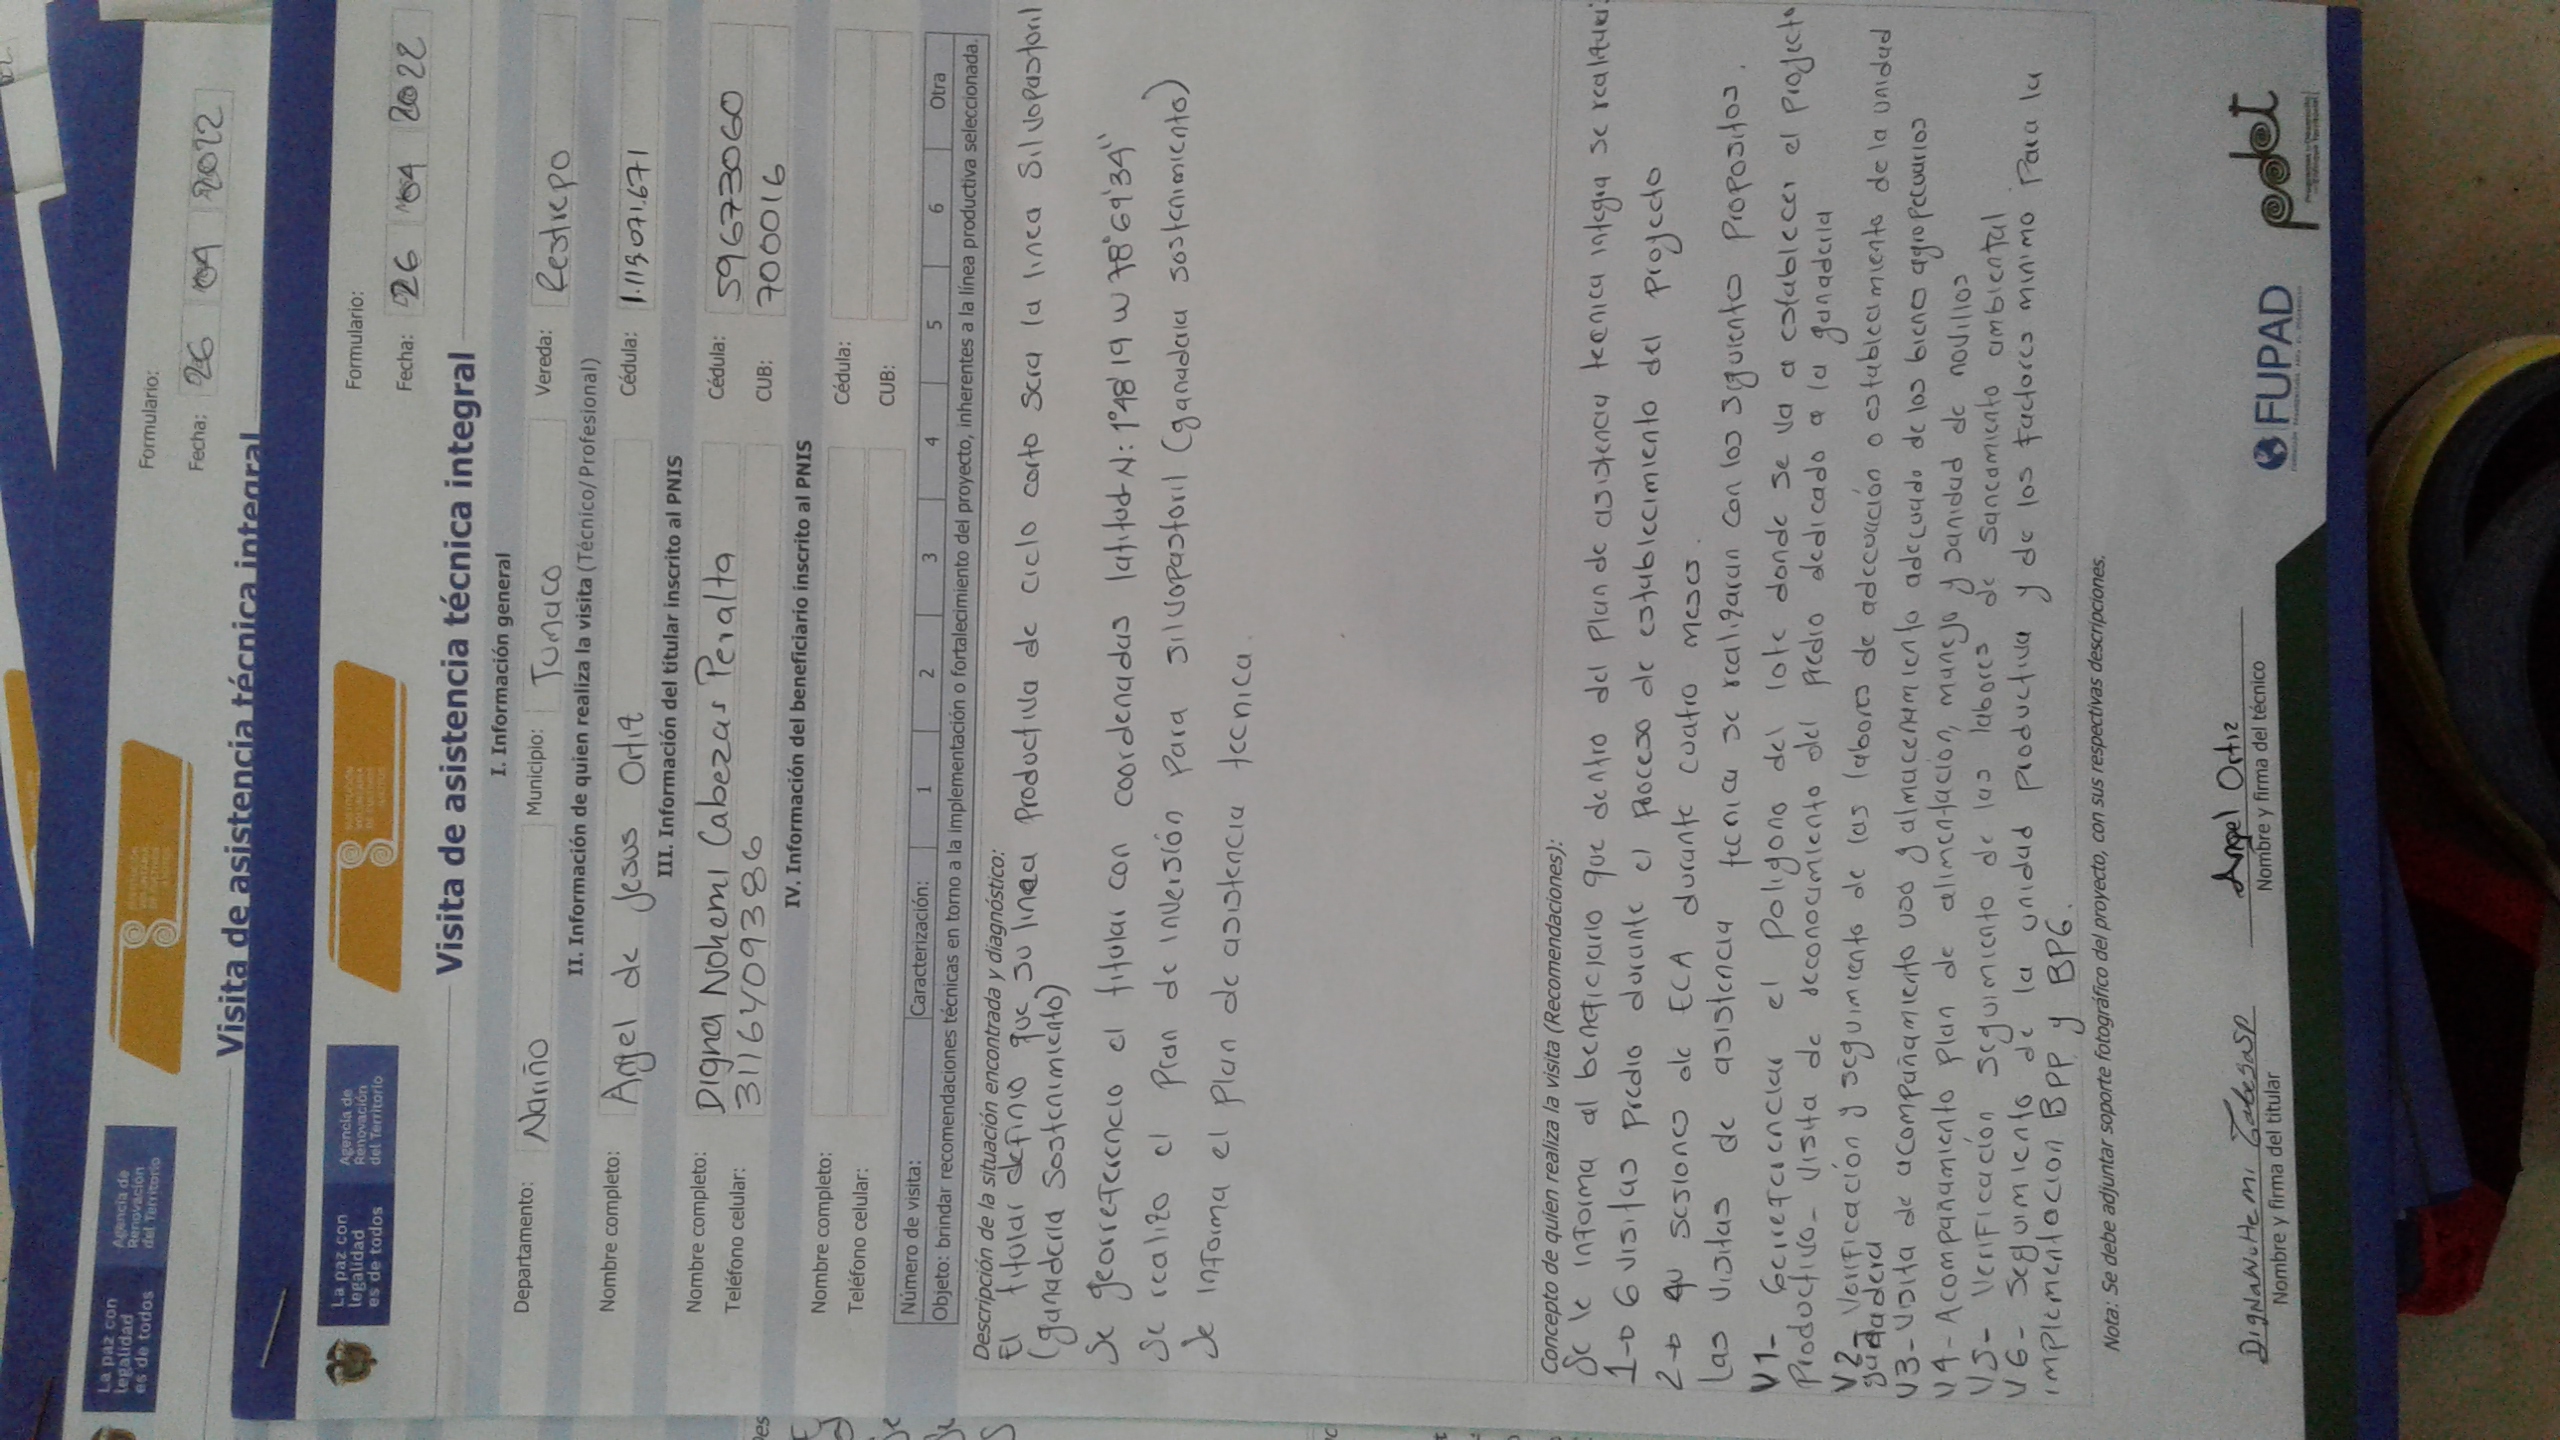 La paz con
legalidad
es de todos
Agencia de
Renovación
del Territorio
Formulario:
Fecha: 26 04 2022
Visita de asistencia técnica integral
La paz con
legalidad
es de todos
Agencia de
Renovación
del Territorio
SUSTITUCIÓN
VOLUNTARIA
DE CULTIVOS
ILÍCITOS
Formulario:
Fecha: 26 04 2022
Visita de asistencia técnica integral
I. Información general
Departamento: Nariño Municipio: Tumaco Vereda: Restrepo
II. Información de quien realiza la visita (Técnico/Profesional)
Nombre completo: Angel de Jesus Ortiz Cédula: 1.113.071.671
III. Información del titular inscrito al PNIS
Nombre completo: Digna Nohemi Cabezas Peralta Cédula: 5967673060
Teléfono celular: 3116409386 CUB: 700016
IV. Información del beneficiario inscrito al PNIS
Nombre completo: Cédula:
Teléfono celular: CUB:
Número de visita: Caracterización: 1 2 3 4 5 6 Otra
Objeto: brindar recomendaciones técnicas en torno a la implementación o fortalecimiento del proyecto, inherentes a la línea productiva seleccionada.
Descripción de la situación encontrada y diagnóstico:
El titular definio que su linea productiva de ciclo corto sera la linea silvopastoril
(ganaderia sostenimiento)
Se georreferencio el titular con coordenadas latitud N: 1°48'19 W 78°69'34"
Se realizo el pran de inversión para silvopastoril (ganaderia sostenimiento)
Se informa el plan de asistencia tecnica.
Concepto de quien realiza la visita (Recomendaciones):
Se le informa al beneficiario que dentro del plan de asistencia tecnica integra se realitari:
1-> 6 visitas predio durante el proceso de establecimiento del proyecto
2-> 4 sesiones de ECA durante cuatro meses.
Las visitas de asistencia tecnica se realizaran con los sguiento propositos.
V1- Gerreferenciar el poligono del lote donde se va a establecer el proyecto
productivo- visita de reconocimiento del predio dedicado a la ganaderia
V2- Verificación y seguimiento de las labores de adecuación o establecimiento de la unidad
ganadera
V3- Visita de acompañamiento uso y almacenamiento adecuado de los bienes agropecuarios
V4- Acompañamiento plan de alimentación, manejo y sanidad de novillos
V5- Verificación seguimiento de las labores de saneamiento ambiental
V6- Seguimiento de la unidad productiva y de los factores minimo para la
implementacion BPP y BPG.
Nota: Se debe adjuntar soporte fotográfico del proyecto, con sus respectivas descripciones.
Angel Ortiz
Nombre y firma del titular Nombre y firma del técnico
FUPAD
pdet